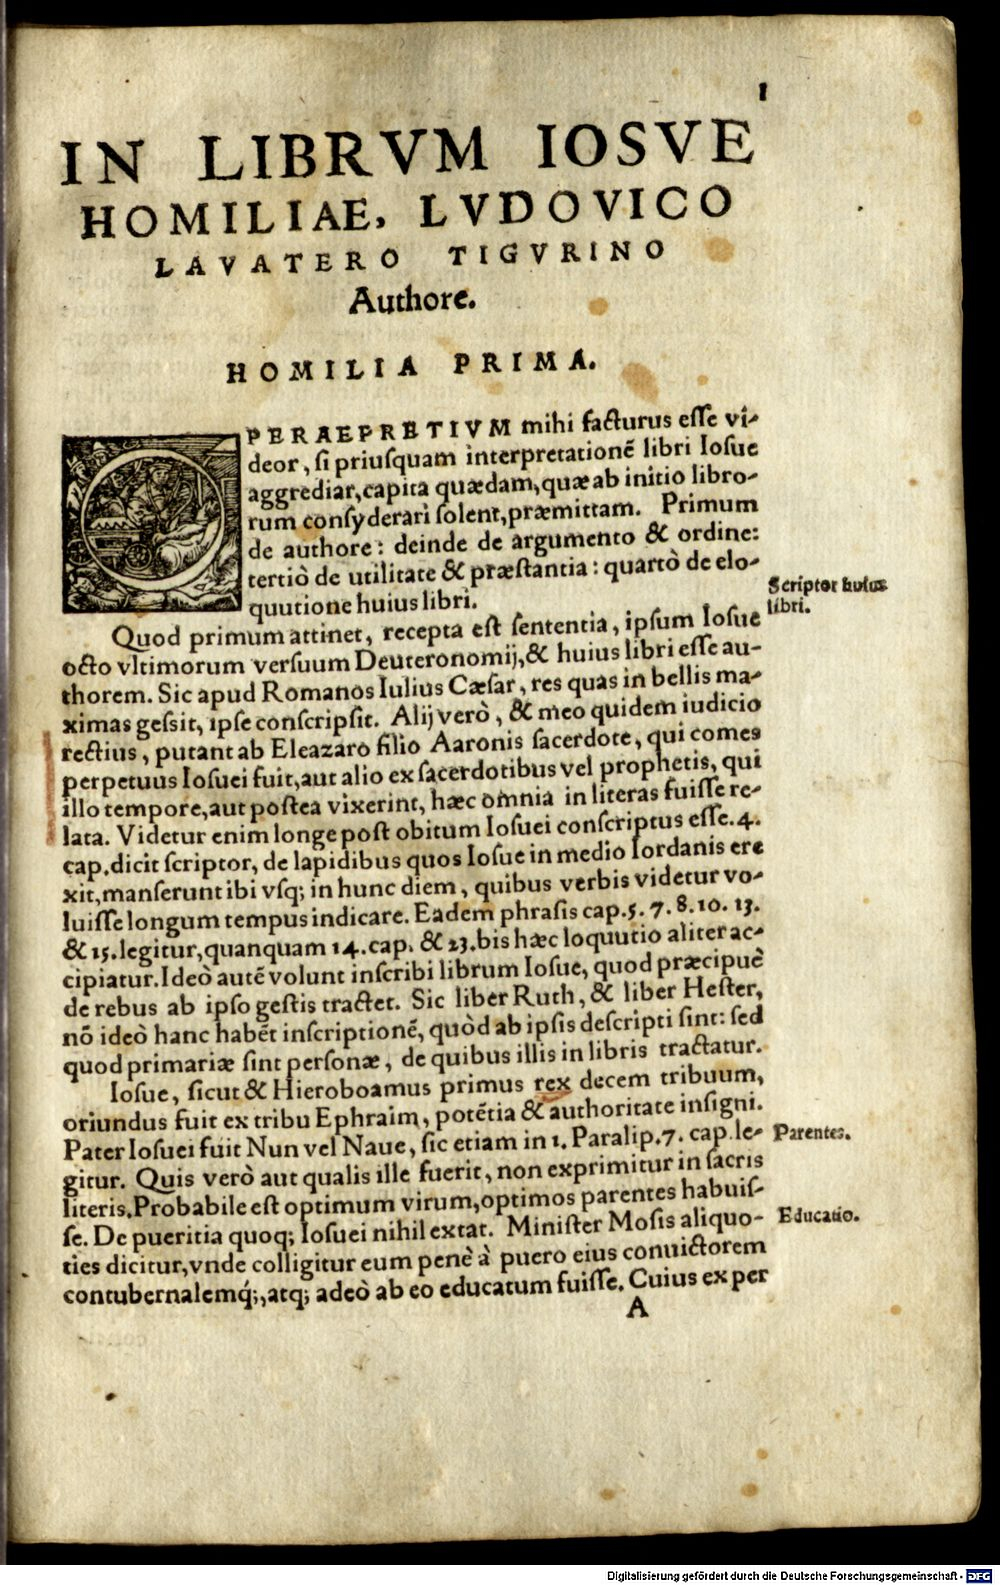 1
IN LIBRVM IOSVE
HOMILIAE, LVDOVICO
LAVATERO TIGVRINO
Authore.
HOMILIA PRIMA.
OPERAEPRETIVM mihi facturus esse vi-
deor, si priusquam interpretationē libri Iosue
aggrediar, capita quædam, quæ ab initio libro-
rum consyderari solent, præmittam. Primum
de authore: deinde de argumento & ordine:
tertiò de utilitate & præstantia: quartò de elo-
quutione huius libri.
Scriptor huius
libri.
Quod primum attinet, recepta est sententia, ipsum Iosue
octo vltimorum versuum Deuteronomij, & huius libri esse au-
thorem. Sic apud Romanos Iulius Cæsar, res quas in bellis ma-
ximas gessit, ipse conscripsit. Alij verò, & meo quidem iudicio
rectius, putant ab Eleazaro filio Aaronis sacerdote, qui comes
perpetuus Iosuei fuit, aut alio ex sacerdotibus vel prophetis, qui
illo tempore, aut postea vixerint, hæc omnia in literas fuisse re-
lata. Videtur enim longe post obitum Iosuei conscriptus esse. 4.
cap. dicit scriptor, de lapidibus quos Iosue in medio Iordanis ere
xit, manserunt ibi vsq; in hunc diem, quibus verbis videtur vo-
luisse longum tempus indicare. Eadem phrasis cap. 5. 7. 8. 10. 13.
& 15. legitur, quanquam 14. cap. & 23. bis hæc loquutio aliter ac-
cipiatur. Ideò autē volunt inscribi librum Iosue, quod præcipuè
de rebus ab ipso gestis tractet. Sic liber Ruth, & liber Hester,
nō ideò hanc habēt inscriptionē, quòd ab ipsis descripti sint: sed
quod primariæ sint personæ, de quibus illis in libris tractatur.
Iosue, sicut & Hieroboamus primus rex decem tribuum,
oriundus fuit ex tribu Ephraim, potētia & authoritate insigni.
Pater Iosuei fuit Nun vel Naue, sic etiam in 1. Paralip. 7. cap. le-
Parentes.
gitur. Quis verò aut qualis ille fuerit, non exprimitur in sacris
literis. Probabile est optimum virum, optimos parentes habuis-
se. De pueritia quoq; Iosuei nihil extat. Minister Mosis aliquo-
Educatio.
ties dicitur, vnde colligitur eum penè à puero eius conuictorem
contubernalemq́;, atq; adeò ab eo educatum fuisse. Cuius ex per
A
Digitalisierung gefördert durch die Deutsche Forschungsgemeinschaft - DFG